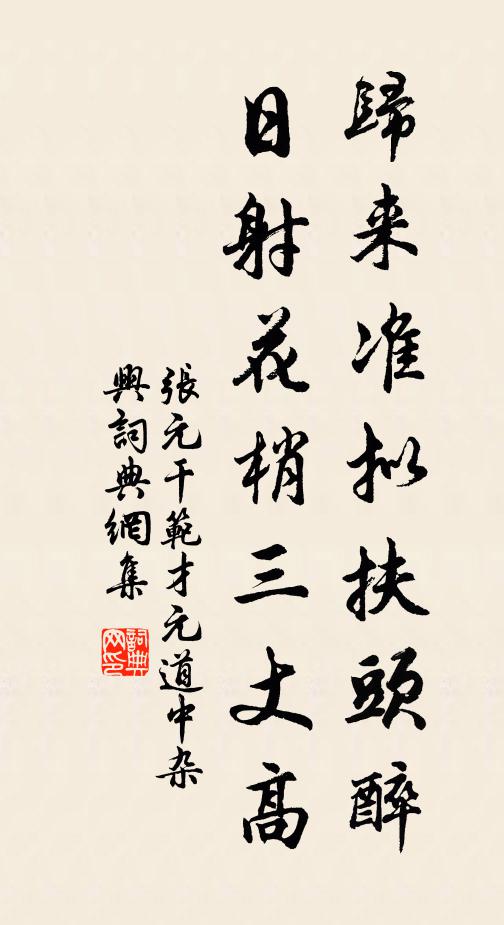 歸来准拟扶頭醉
日射花梢三丈高
張元干範才元道中杂
興詞典網集
詞典网印